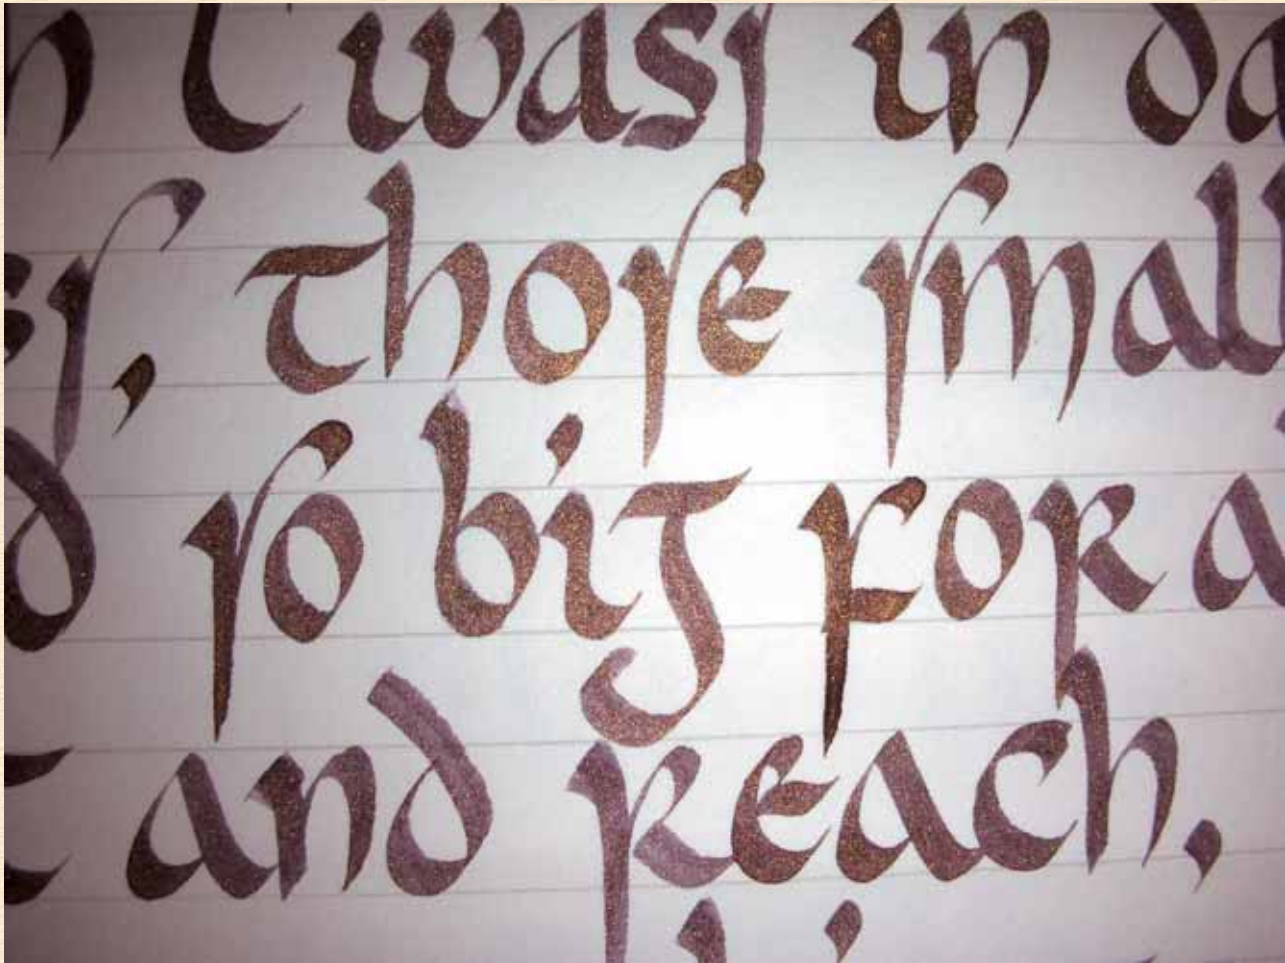 n I wasſ in da
sſ, thoſe ſmall
d ſo big for a
t and reach,